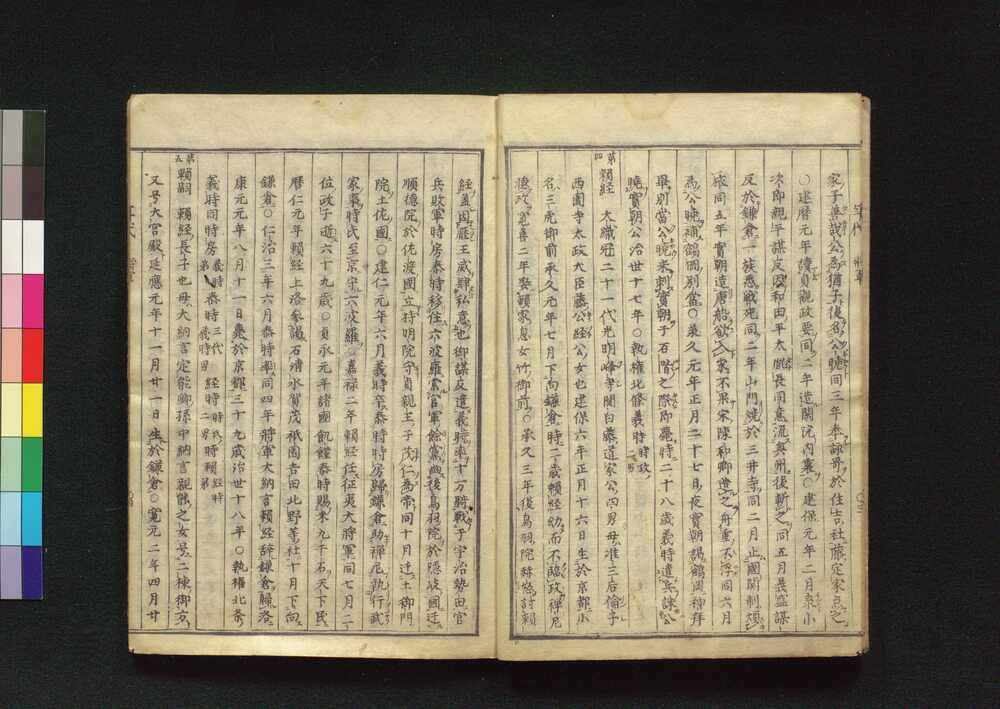 家子無哉公為猶子復名公曉同三年奉詠哥於住吉社藤定家点之
○建曆元年續貞觀政要同二年造閑院内裏○建保元年二月泉小
次郎親平謀反因和田平太胤長同意流奥州後斬之同五月義盛謀
反於鎌倉一族悉戰死同二年山門燒於三井寺同二月止國關制煩
成同五年實朝造唐船欲入宋不果宋陳和卿造之舟重不浮同六月
為公曉補鶴岡別當○承久元年正月二十七日夜實朝謁鶴岡神拜
畢別當公曉来刺實朝于石階之際即薨時二十八歲義時遣兵誅公
曉實朝公治世十七年○執權北條義時時政二男
第四 賴経 大織冠二十一代光明峰寺関白藤道家公四男母准三后倫子
西園寺太政大臣藤公経公女也建保六年正月十六日生於京都小
名三虎御前承久元年七月下向鎌倉時二歲賴経幼而不臨政禪尼
聽政寛喜二年娶賴家息女竹御前○承久三年後鳥羽院 討賴
経蓋因雁王威肆私意也御謀反遣義時率十万騎戰于宇治勢田官
兵敗軍時房泰時移住六波羅當官軍餘黨幽後鳥羽院於隠岐國迁
順德院於佐渡國立持明院守貞親王子茂仁為帝同十月迁土御門
院土佐國○建仁元年六月義時卒泰時時房歸鎌倉助禪尼執行武
家事時氏至京守六波羅○嘉禄二年賴経任征夷大將軍同七月二
位政子逝六十九歲○貞永元年諸國飢饉泰時賜米九千石天下民
曆仁元年賴経上洛参謁石清水賀茂祇園吉田北野等社十月下向
鎌倉○仁治三年六月泰時卒同四年將軍大納言賴経辞鎌倉歸洛
康元元年八月十一日薨於京師三十九歲治世十八年○執權北条
義時同時房義時弟泰時三代義時男経時時氏二男時賴経時弟
第五 賴嗣 賴経長子也母大納言定能卿孫中納言親能之女号二棟御方
又号大宮殿延應元年十一月廿一日生於鎌倉○寛元二年四月廿